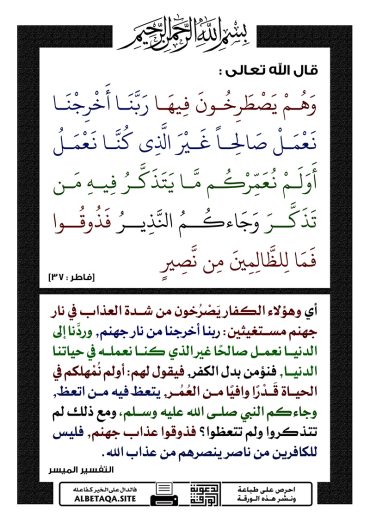 بِسْمِ اللَّهِ الرَّحْمَنِ الرَّحِيمِ
قال الله تعالى :
وَهُمْ يَصْطَرِخُونَ فِيهَا رَبَّنَا أَخْرِجْنَا
نَعْمَلْ صَالِحاً غَيْرَ الَّذِي كُنَّا نَعْمَلُ
أَوَلَمْ نُعَمِّرْكُم مَّا يَتَذَكَّرُ فِيهِ مَن
تَذَكَّرَ وَجَاءكُمُ النَّذِيرُ فَذُوقُوا
فَمَا لِلظَّالِمِينَ مِن نَّصِيرٍ
[فاطر : ٣٧]
أي وهؤلاء الكفار يَصْرُخون من شدة العذاب في نار
جهنم مستغيثين: ربنا أخرجنا من نار جهنم, وردَّنا إلى
الدنيا نعمل صالحًا غير الذي كنا نعمله في حياتنا
الدنيا, فنؤمن بدل الكفر, فيقول لهم: أولم نُمْهلكم في
الحياة قَدْرًا وافيًا من العُمُر, يتعظ فيه من اتعظ,
وجاءكم النبي صلى الله عليه وسلم, ومع ذلك لم
تتذكروا ولم تتعظوا؟ فذوقوا عذاب جهنم, فليس
للكافرين من ناصر ينصرهم من عذاب الله.
التفسير الميسر
احرص على طباعة
ونشر هذه الورقة
فالدال على الخير كفاعله
ALBETAQA.SITE